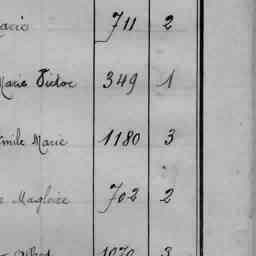 Marie 711 2
Marie Victor 349 1
Emile Marie 1180 3
Magloire 702 2
1070 3